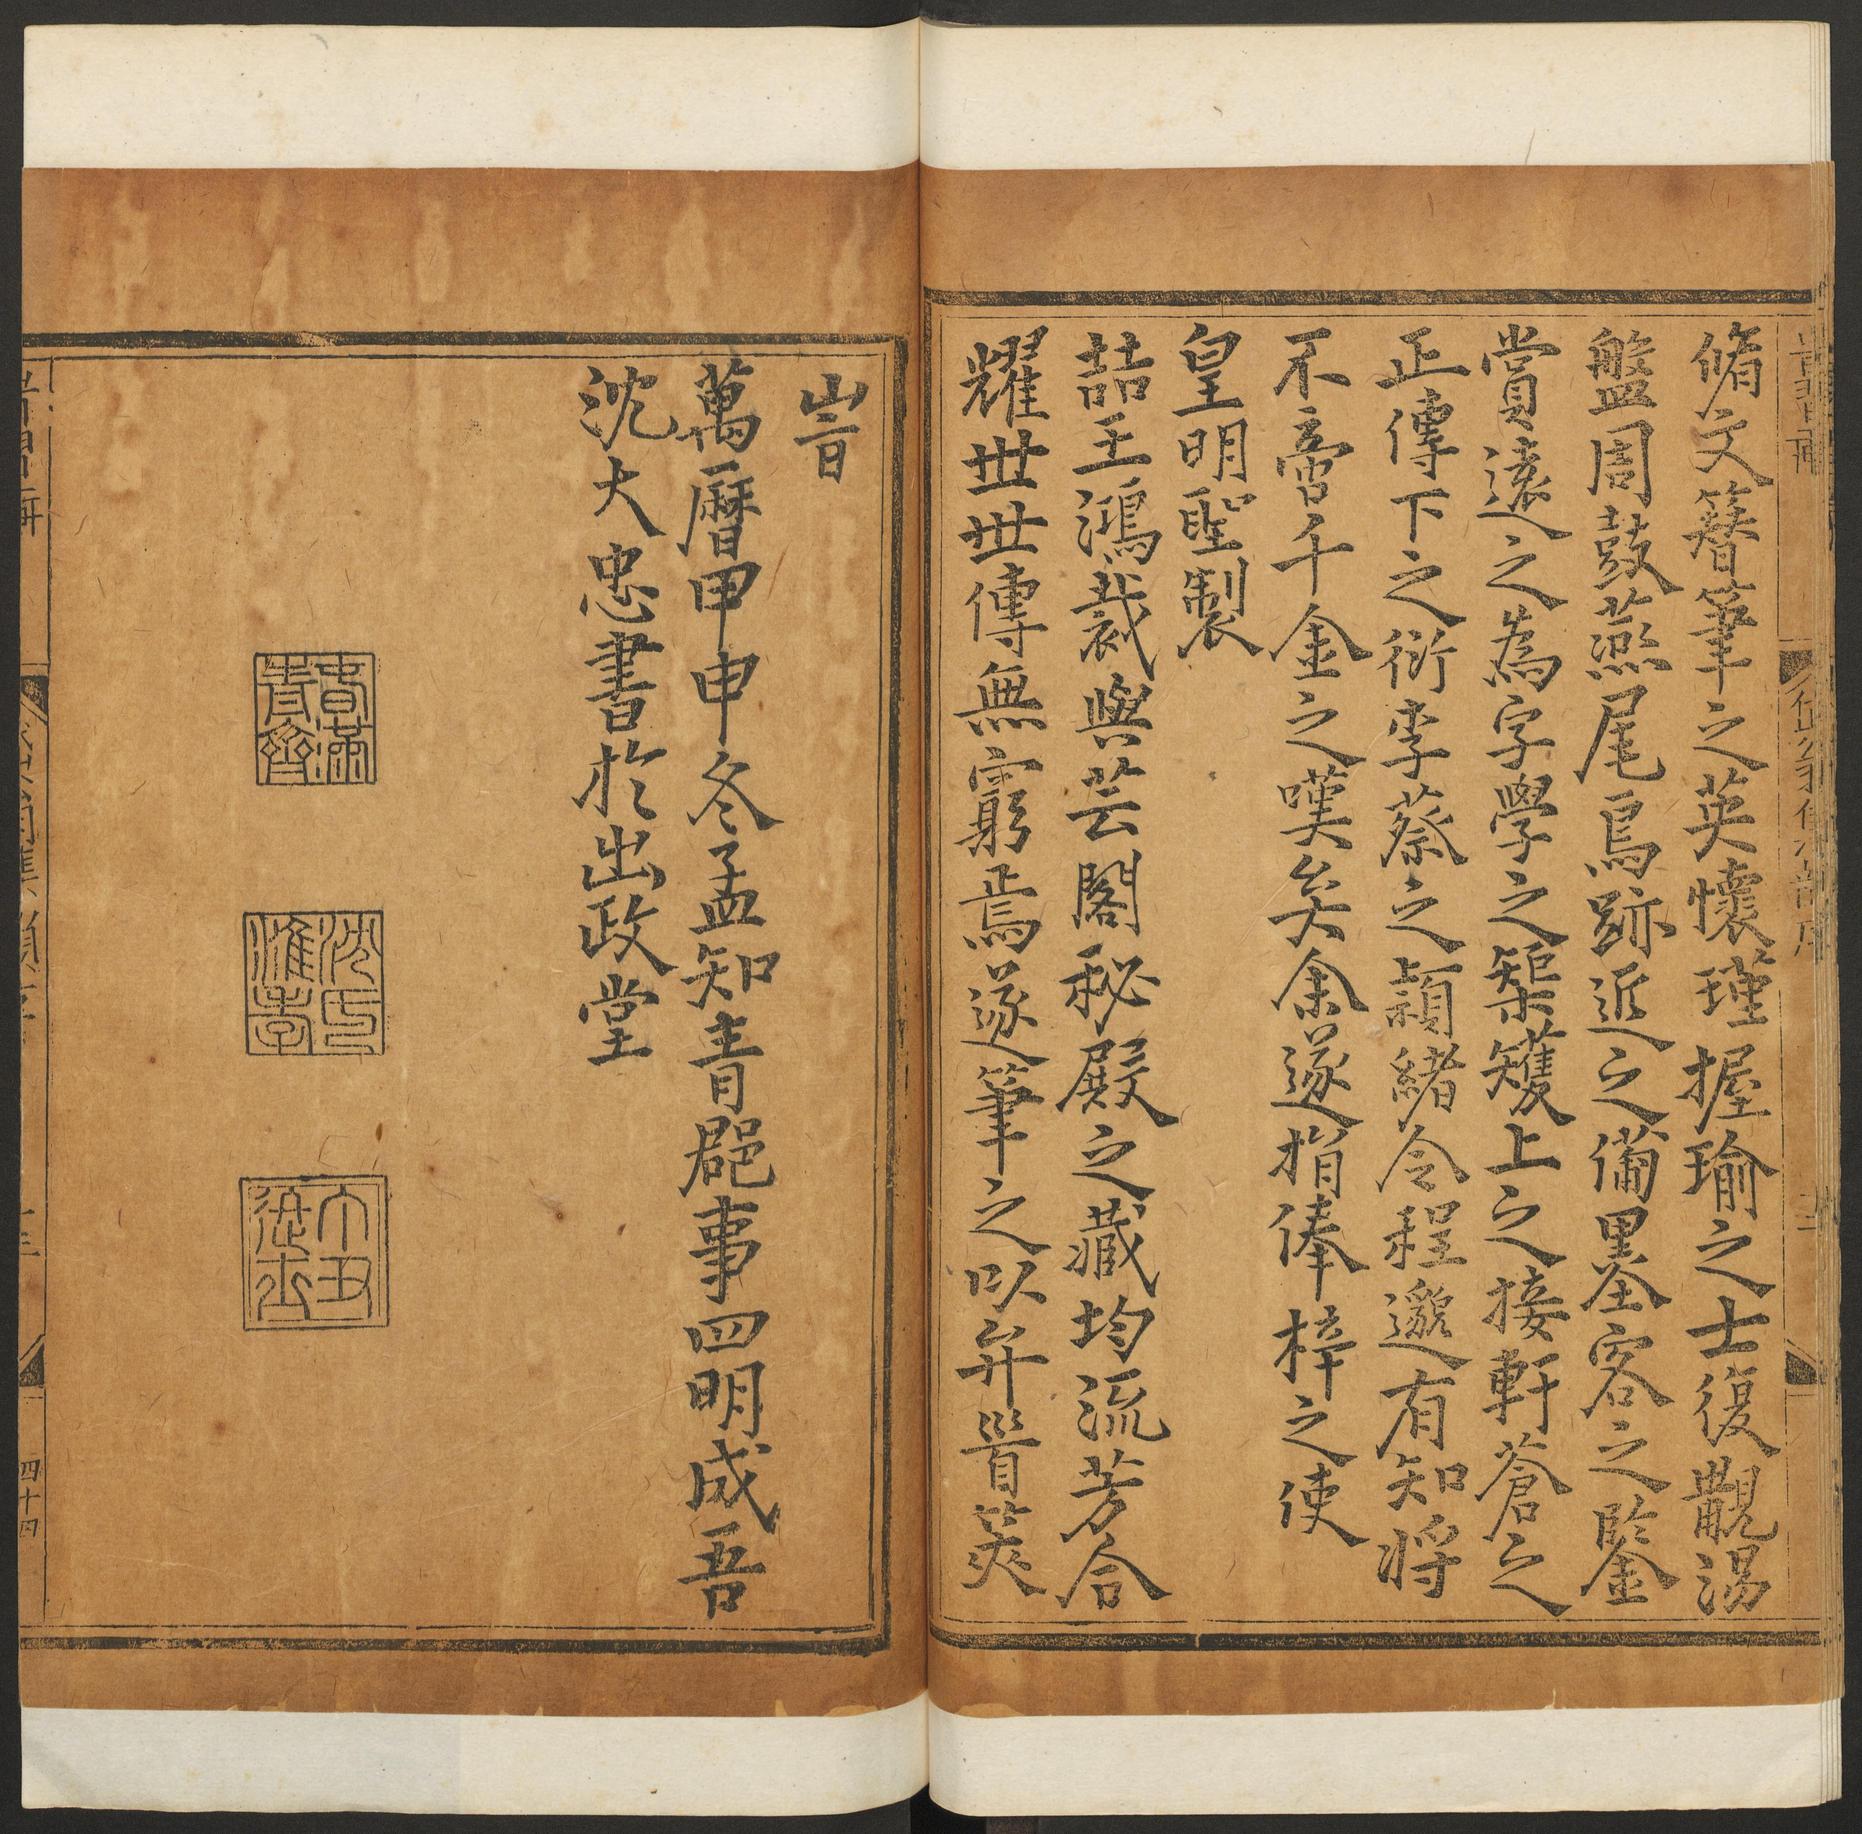 脩文簪筆之英懷瑾握瑜之士復覩湯
盤周鼓燕尾鳥跡近之俻墨客之鑒
賞遠之為字學之榘矱上之接軒蒼之
正傳下之衍李蔡之穎緒令程邈有知將
不啻千金之嘆矣余遂捐俸梓之使
皇明聖製
喆王鴻裁與芸閣秘殿之藏均流芳合
耀世世傳無窮焉遂筆之以弁首筴
旹
萬曆甲申冬孟知青郡事四明成吾
沈大忠書於出政堂
四十四